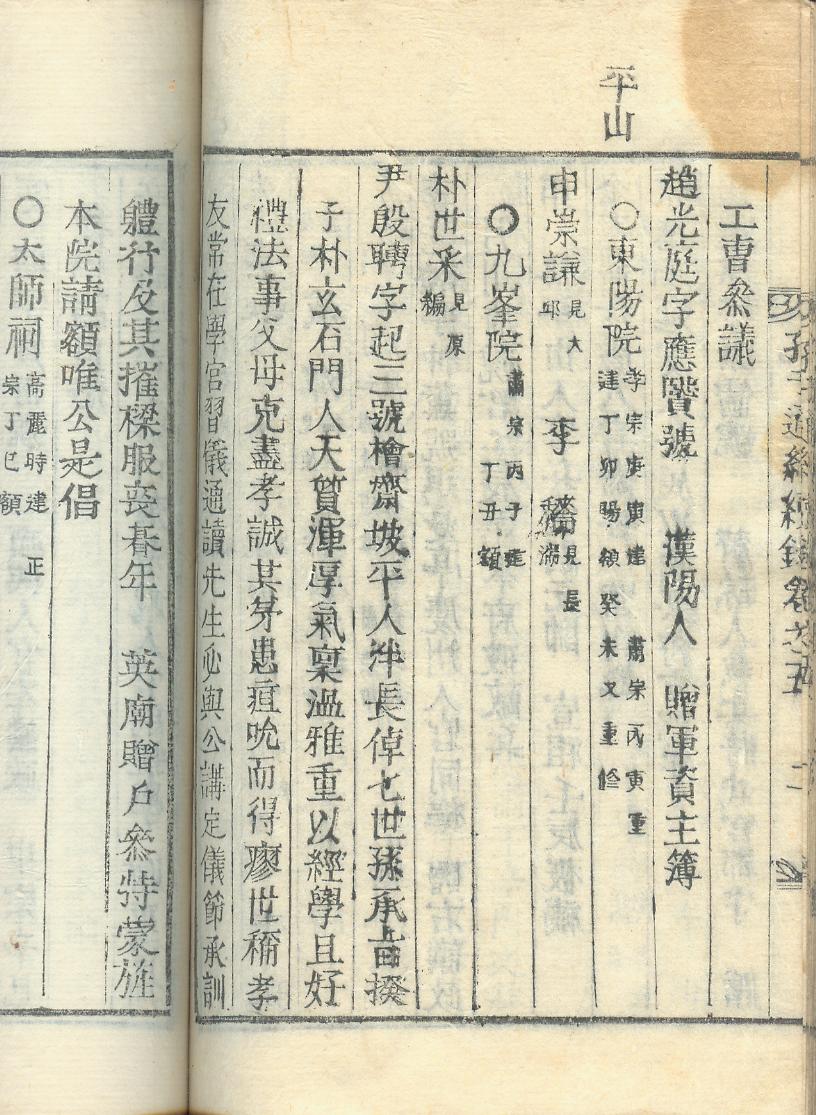 平山
工曹叅議
趙光庭字應賢號 漢陽人 贈軍資主簿
○東陽院 孝宗庚寅建 肅宗丙寅重
建丁卯賜額癸未又重修
申崇謙 見大邱 李穡 見長湍
○九峯院 肅宗丙子建
丁丑額
朴世采 見原編
尹殷聘字起三號檜齋坡平人 長倬七世孫承旨揆
子朴玄石門人天質渾厚氣禀温雅重以經學且好
禮法事父母克盡孝誠其弟患疽吮而得瘳世稱孝
友常在學宮習儀通讀先生必與公講定儀節承訓
軆行及其摧樑服丧朞年 英廟贈戶叅特蒙旌
本院請額唯公是倡
○太師祠 高麗時建 正
宗丁巳額